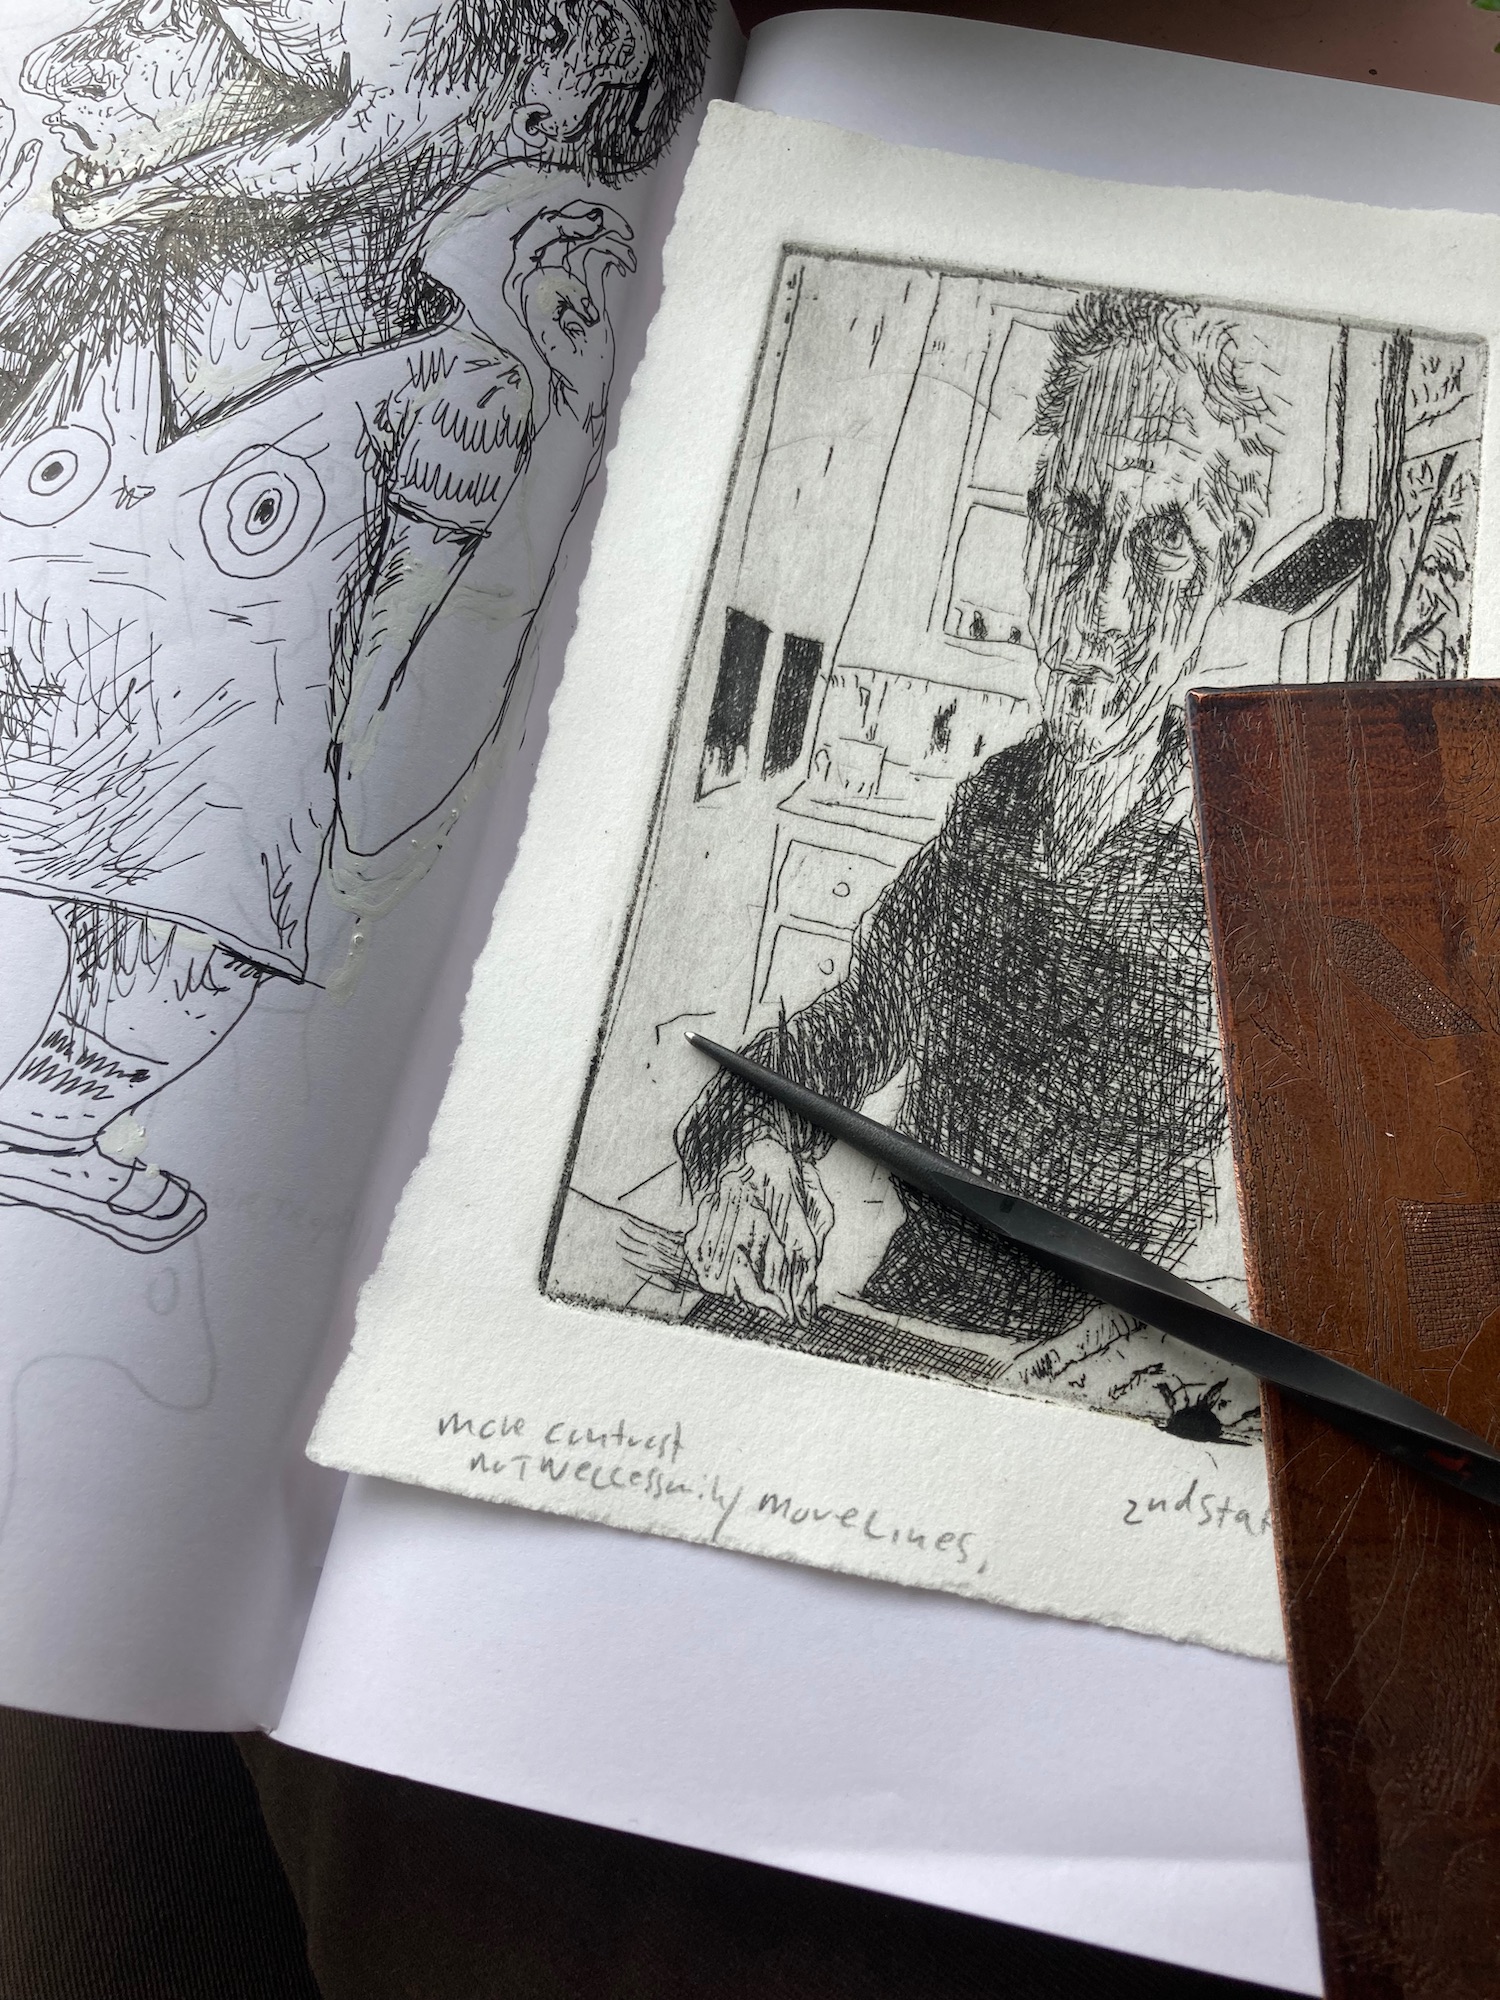 more contrast
not Neccessarily more Lines,
2nd Stat